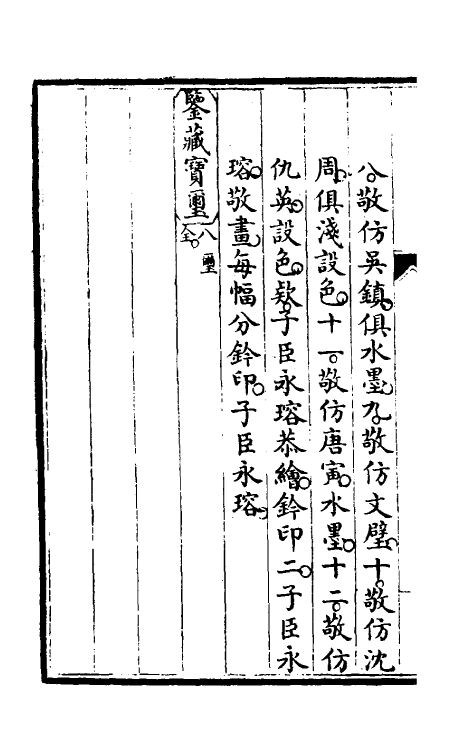 八。敬仿吳鎮。俱水墨。九。敬仿文璧。十。敬仿沈
周。俱淺設色。十一。敬仿唐寅。水墨。十二。敬仿
仇英。設色。款。子臣永瑢恭繪。鈐印二。子臣永
瑢。敬畫。每幅分鈐印。子臣永瑢。
鑒藏寶璽
八璽
全。